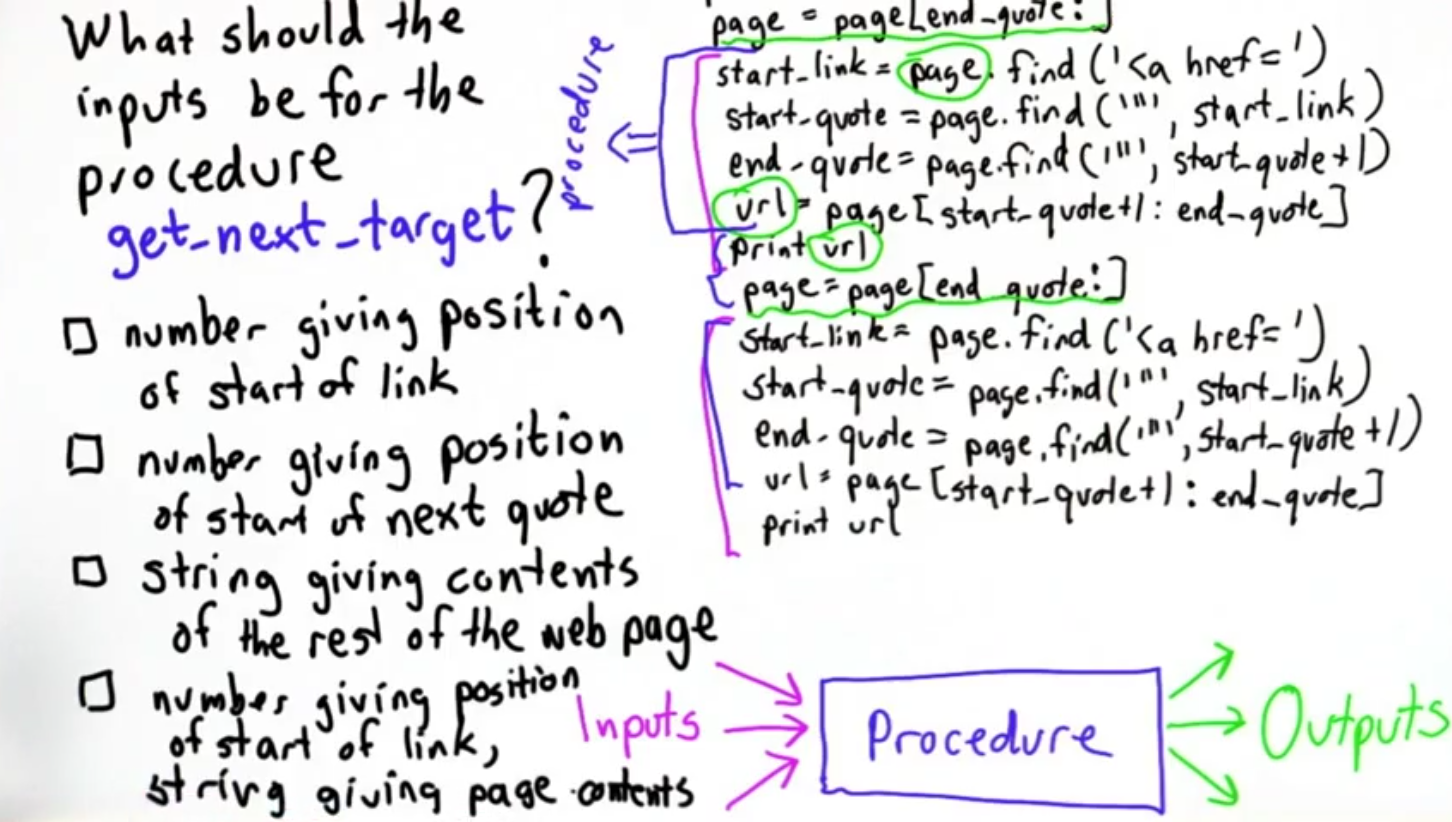 What should the
inputs be for the
procedure
get_next_target?
□ number giving position
of start of link
□ number giving position
of start of next quote
□ string giving contents
of the rest of the web page
□ number giving position
of start of link,
string giving page contents
procedure
page = page[end_quote:]
start_link = page.find('<a href=')
start_quote = page.find('"', start_link)
end_quote = page.find('"', start_quote+1)
url = page[start_quote+1: end_quote]
print url
page = page[end_quote:]
start_link = page.find('<a href=')
start_quote = page.find('"', start_link)
end_quote = page.find('"', start_quote+1)
url = page[start_quote+1: end_quote]
print url
Inputs
Procedure
Outputs